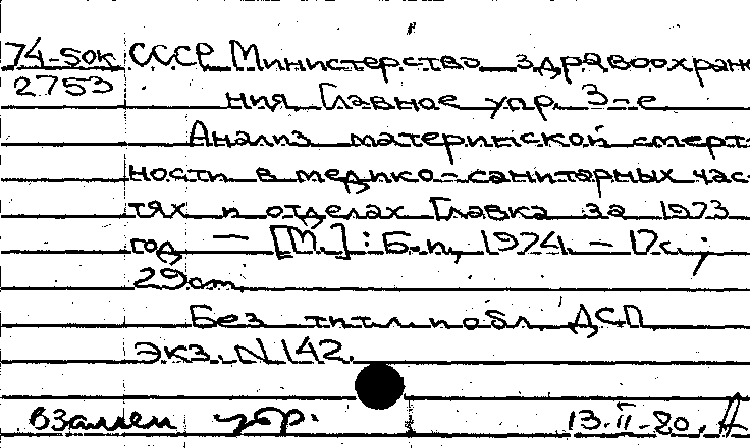 74-50к СССР Министерство здравоохране
2753 ния. Главное упр. 3-е.
Анализ материнской смерт-
ности в медико-санитарных час-
тях и отделах Главка за 1973
год. — [М.]: Б.и., 1974. — 17с.;
29см.
Без тит. л. и обл. ДСП
Экз. N 142.
взамен убр. 13.II-80.